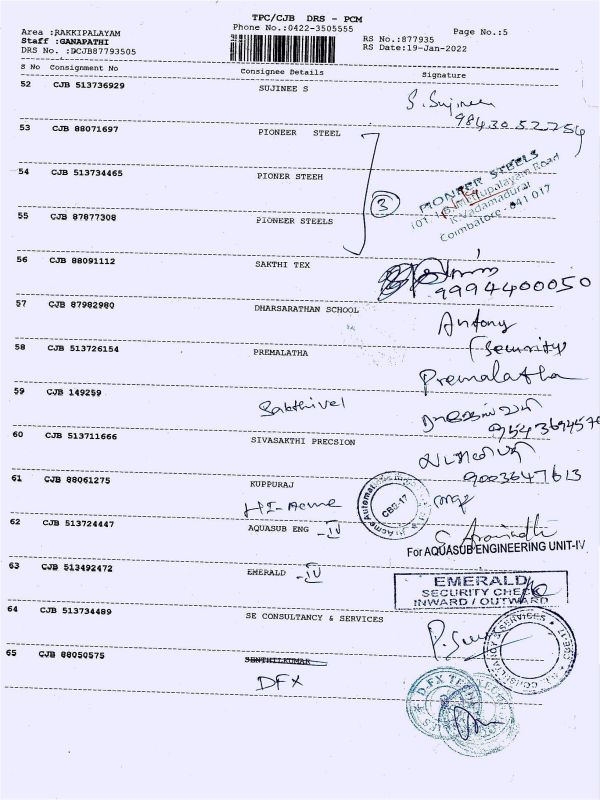 TPC/CJB DRS - PCM
Phone No.:0422-3505555
Area :RAKKIPALAYAM
Staff :GANAPATHI
DRS No. :DCJB87793505
RS No.:877935
RS Date:19-Jan-2022
Page No.:5
S No Consignment No Consignee Details Signature
52 CJB 513736929 SUJINEE S
S. Sujinee
98430 52254
53 CJB 88071697 PIONEER STEEL
54 CJB 513734465 PIONER STEEH
3
PIONEER STEELS
Mettupalayam Road
K.Vadamadurai
Coimbatore - 641 017
55 CJB 87877308 PIONEER STEELS
56 CJB 88091112 SAKTHI TEX
9994400050
57 CJB 87982980 DHARSARATHAN SCHOOL
Antony
(Security
58 CJB 513726154 PREMALATHA
Premalatha
59 CJB 149259 Sakthivel
60 CJB 513711666 SIVASAKTHI PRECSION
9003647613
61 CJB 88061275 KUPPURAJ
HI-Acme
CBE-17
62 CJB 513724447 AQUASUB ENG -IV
For AQUASUB ENGINEERING UNIT-IV
63 CJB 513492472 EMERALD -IV
EMERALD
SECURITY CHECK
INWARD / OUTWARD
64 CJB 513734489 SE CONSULTANCY & SERVICES
65 CJB 88050575 SENTHILKUMAR
DFX